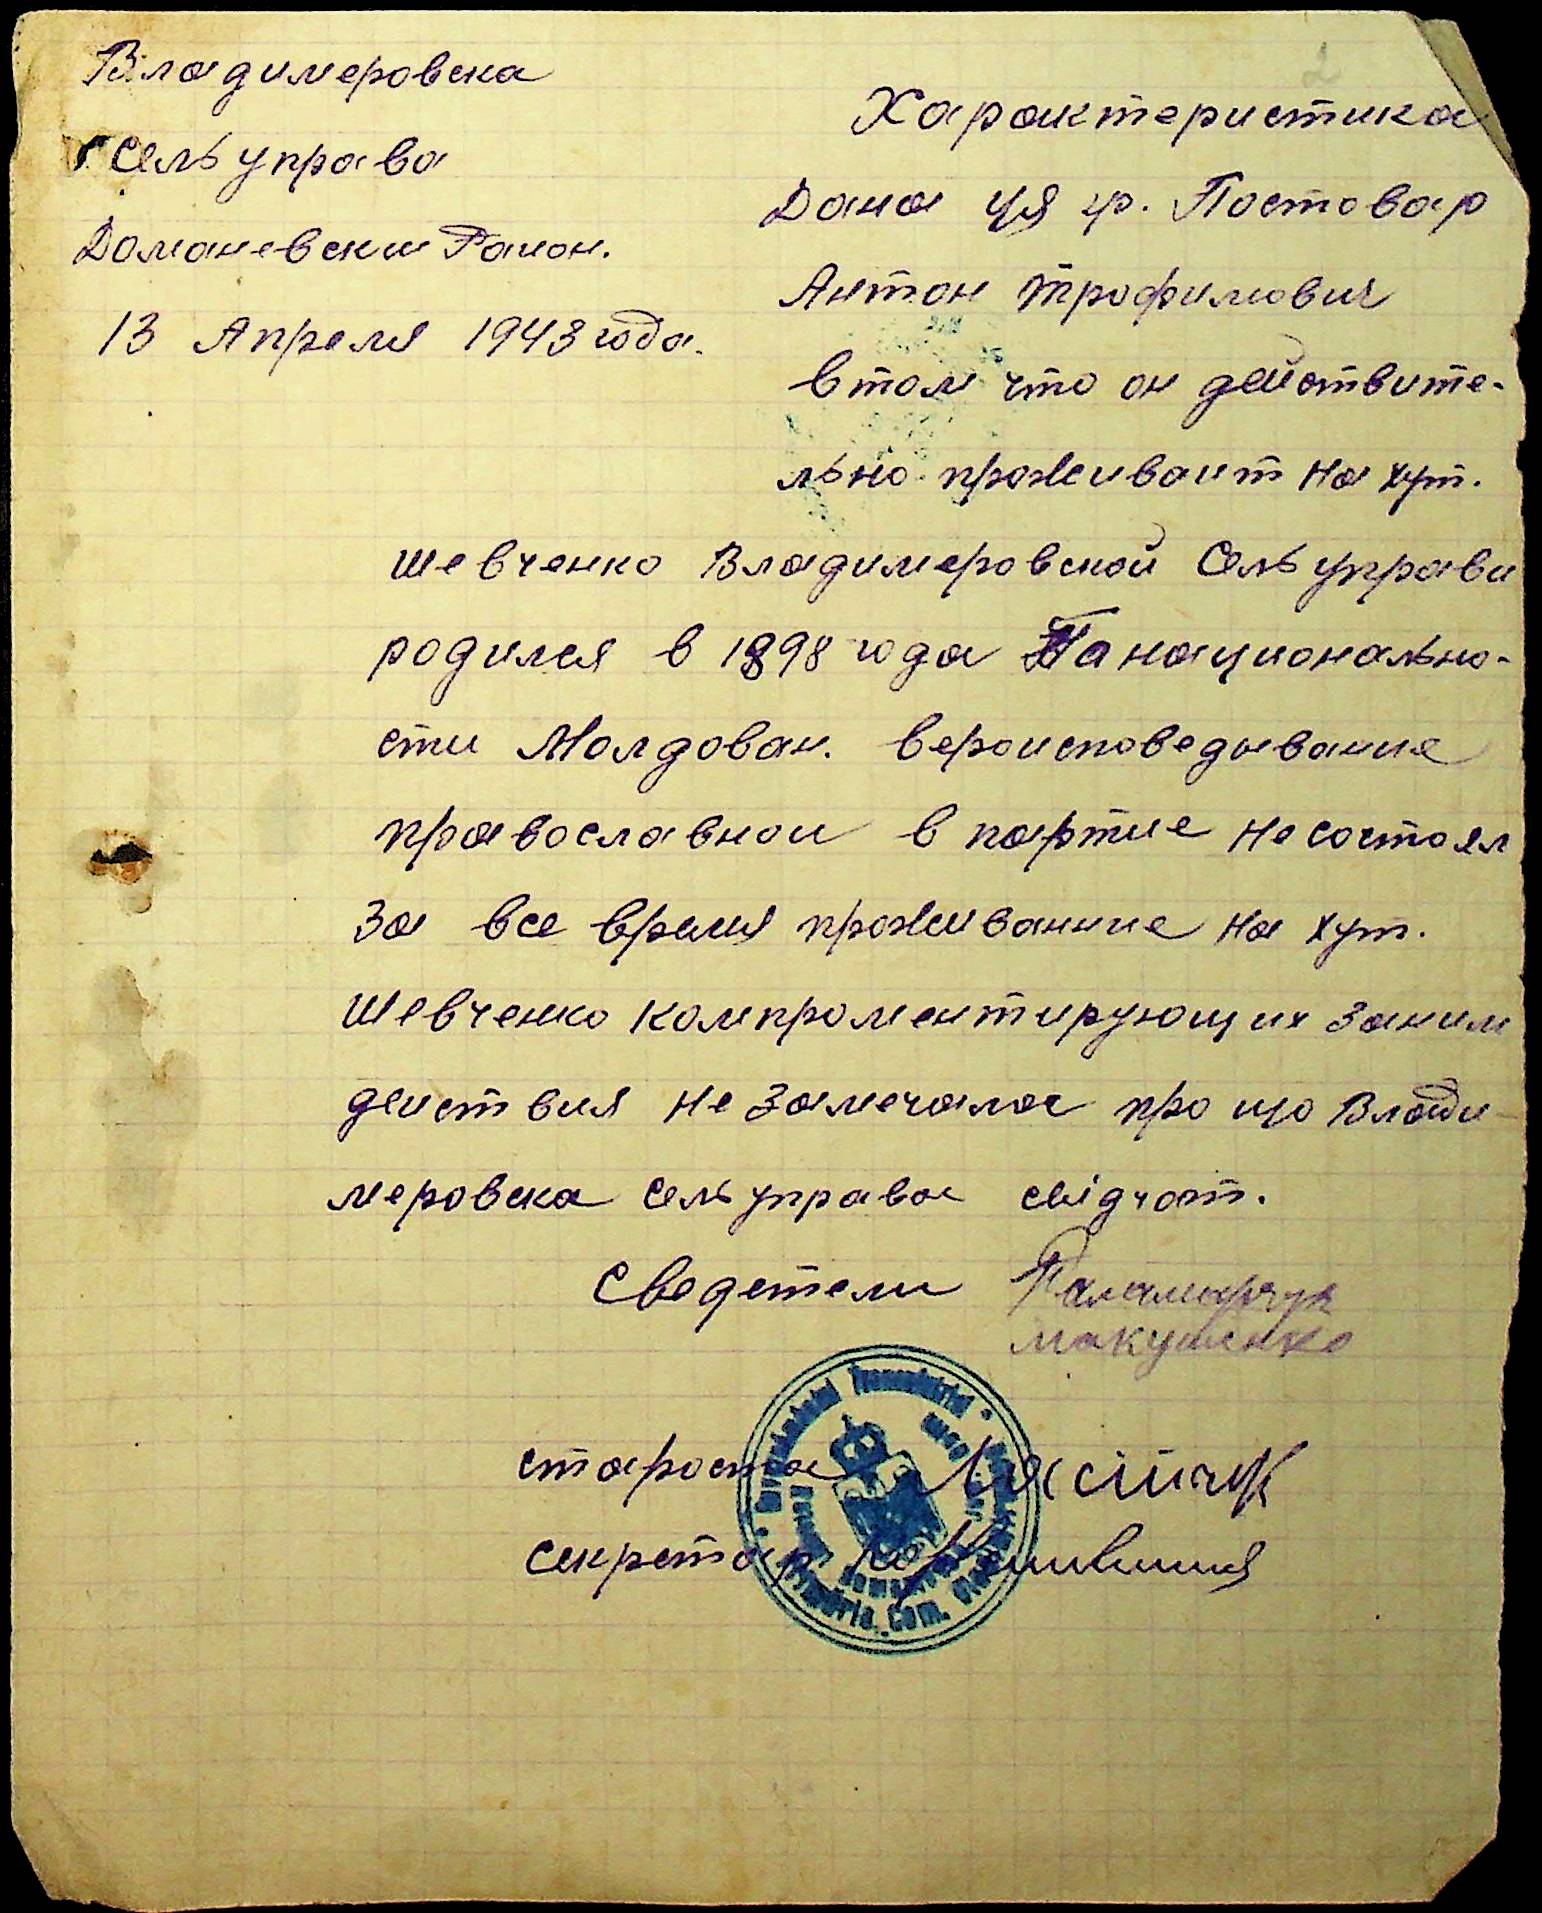 Владимеровска
Сельуправа
Доманевски Раион.
13 Апреля 1943 года.
Характеристика
Дана ця гр. Постовар
Антон Трофимович
в том что он действите-
льно проживаит на хут.
Шевченко Владимеровской Сельуправи
родился в 1898 года По национально-
сти Молдован. вероисповедывание
православнои в партие не состоял
За все время проживанние на хут.
Шевченко компроментирующих Заним
деиствия не Замечалос про що Влади-
меровска сельуправа свідчат.
Сведетели Паламарчук
Макушенко
староста
секретар
Guvernământul Transnistriei
Primăria Com.